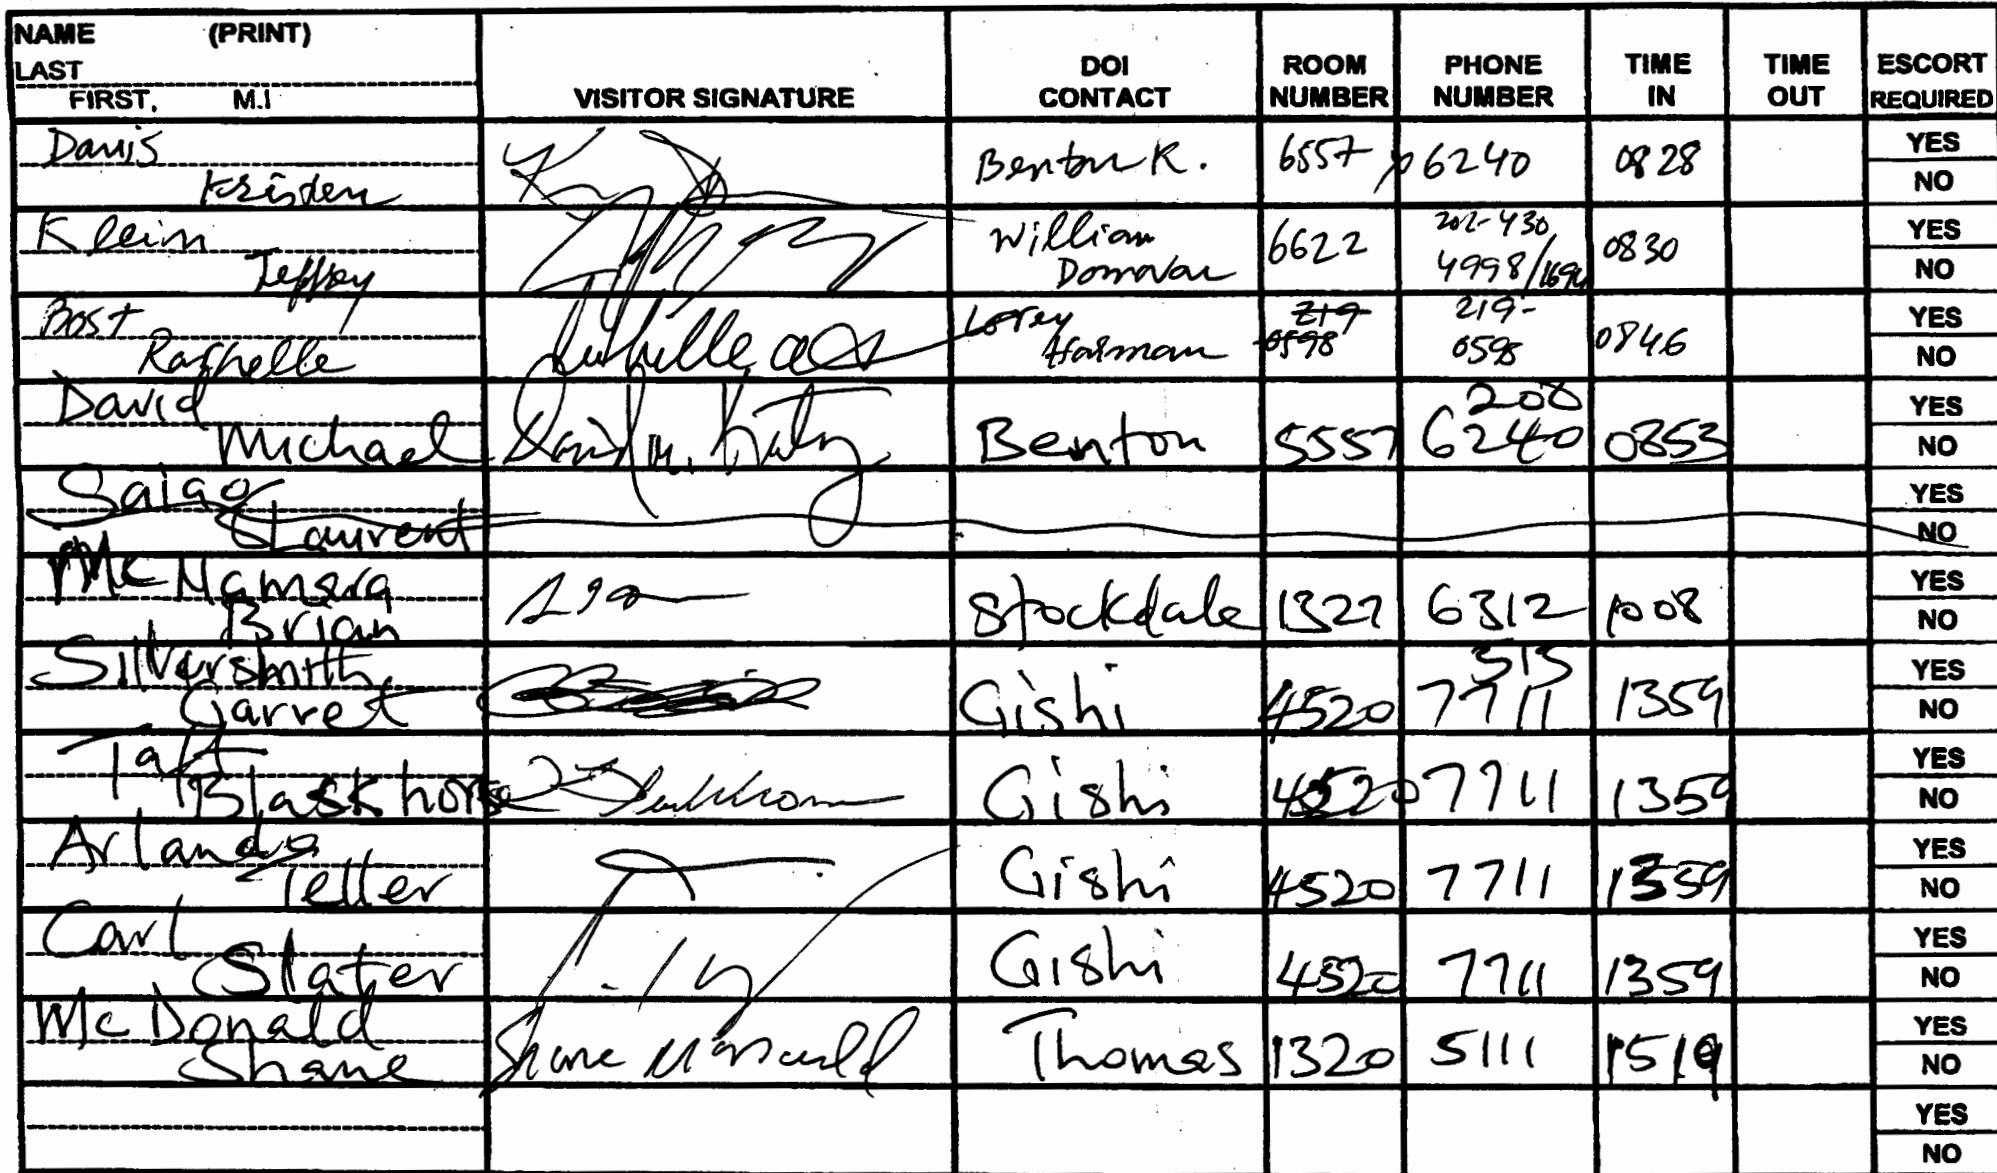 NAME (PRINT)
LAST
FIRST, M.I
VISITOR SIGNATURE
DOI
CONTACT
ROOM
NUMBER
PHONE
NUMBER
TIME
IN
TIME
OUT
ESCORT
REQUIRED
Davis
Kristen
Benton R.
6557
6240
0828
YES
NO
Klein
Jeffrey
William
Donovan
6622
202-430
4998/
0830
YES
NO
Bost
Rachelle
Lorey
Harman
219
0598
219-
0598
0846
YES
NO
David
Michael
Benton
5557
208
6240
0853
YES
NO
Saigo
Laurent
YES
NO
McNamara
Brian
Stockdale
1327
6312
1008
YES
NO
Silversmith
Garret
Gishi
4520
513
7711
1359
YES
NO
Taft
Blackhorse
Gishi
4520
7711
1359
YES
NO
Arlando
Teller
Gishi
4520
7711
1359
YES
NO
Carl
Slater
Gishi
4520
7711
1359
YES
NO
McDonald
Shane
Shane McDonald
Thomas
1320
5111
1519
YES
NO
YES
NO